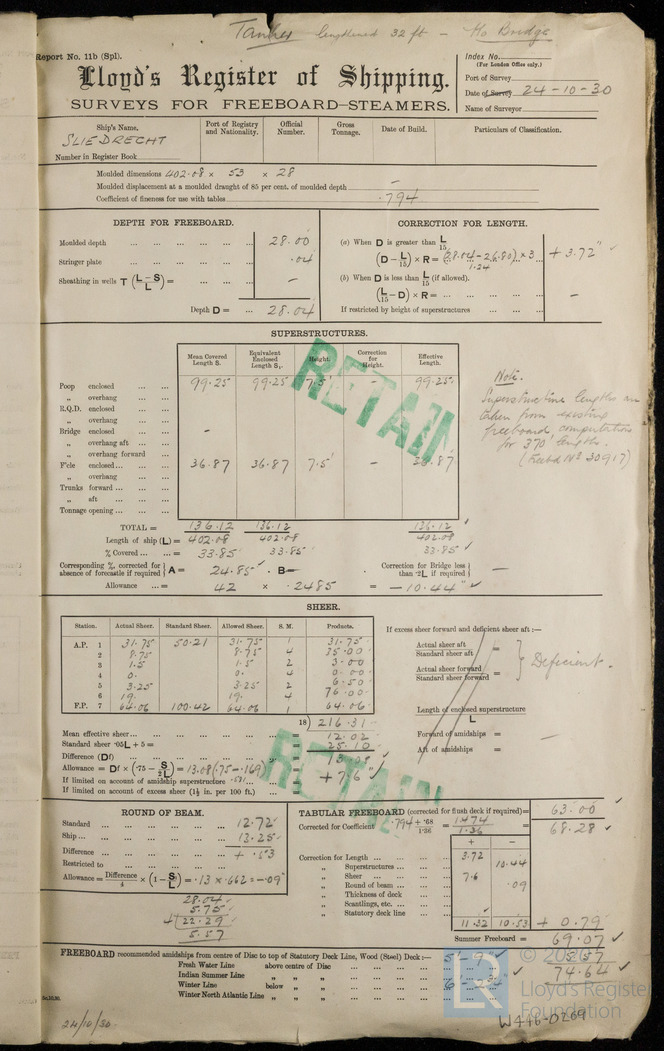 Tanker lengthened 32 ft - No Bridge
Report No. 11b (Spl).
Lloyd's Register of Shipping.
SURVEYS FOR FREEBOARD—STEAMERS.
Index No.
(For London Office only.)
Port of Survey
Date of Survey 24-10-30
Name of Surveyor
Ship's Name. Port of Registry and Nationality. Official Number. Gross Tonnage. Date of Build. Particulars of Classification.
SLIEDRECHT
Number in Register Book
Moulded dimensions 402.08 × 53 × 28
Moulded displacement at a moulded draught of 85 per cent. of moulded depth —
Coefficient of fineness for use with tables .794
DEPTH FOR FREEBOARD.
Moulded depth ... 28.00
Stringer plate ... .04
Sheathing in wells T (L-S/L) = —
Depth D = ... 28.04
CORRECTION FOR LENGTH.
(a) When D is greater than L/15
(D - L/15) × R = (28.04-26.80) × 3 + 3.72" ✓
1.24
(b) When D is less than L/15 (if allowed).
(L/15 - D) × R = ... —
If restricted by height of superstructures
SUPERSTRUCTURES.
Mean Covered Length S. Equivalent Enclosed Length S₁. Height. Correction for Height. Effective Length.
Poop enclosed 99.25 99.25 7.5' - 99.25
„ overhang
R.Q.D. enclosed
„ overhang
Bridge enclosed -
„ overhang aft
„ overhang forward
F'cle enclosed 36.87 36.87 7.5' - 36.87
„ overhang
Trunks forward
„ aft
Tonnage opening
TOTAL = 136.12 136.12 136.12 ✓
Length of ship (L) = 402.08 402.08 402.08
% Covered = 33.85 33.85 33.85 ✓
Corresponding %, corrected for absence of forecastle if required } A = 24.85 ✓ B —
Correction for Bridge less than ·2L if required } —
Allowance = 42 × .2485 = -10.44" ✓
RETAIN
Note.
Superstructure lengths are
taken from existing
freeboard computations
for 370' lengths.
(Feebd Nº 30917)
SHEER.
Station. Actual Sheer. Standard Sheer. Allowed Sheer. S. M. Products.
A.P. 1 31.75 50.21 31.75 1 31.75
2 8.75 8.75 4 35.00
3 1.5 1.5 2 3.00
4 0. 0. 4 0.00
5 3.25 3.25 2 6.50
6 19. 19. 4 76.00
F.P. 7 64.06 100.42 64.06 1 64.06
18) 216.31
Mean effective sheer = 12.02
Standard sheer ·05L + 5 = 25.10
Difference (Df) = 13.08
Allowance = Df × (·75 - S/2L) = 13.08(.75-.169) = +7.6"
If limited on account of amidship superstructure .581
If limited on account of excess sheer (1½ in. per 100 ft.)
If excess sheer forward and deficient sheer aft:—
Actual sheer aft / Standard sheer aft =
Actual sheer forward / Standard sheer forward =
} Deficient.
Length of enclosed superstructure / L =
Forward of amidships =
Aft of amidships =
RETAIN
ROUND OF BEAM.
Standard 12.72
Ship 13.25
Difference + .53
Restricted to
Allowance = Difference/4 × (1 - S/L) = .13 × .662 = -.09"
28.04
5.75
22.29
5.57
TABULAR FREEBOARD (corrected for flush deck if required) = 63.00 ✓
Corrected for Coefficient .794 + .68 / 1.36 = 1.474 / 1.36 = 68.28 ✓
+ —
Correction for Length 3.72
„ Superstructures 10.44
„ Sheer 7.6
„ Round of beam .09
„ Thickness of deck
„ Scantlings, etc.
„ Statutory deck line
11.32 10.53 + 0.79
Summer Freeboard = 69.07 ✓
5.57
74.64 ✓
FREEBOARD recommended amidships from centre of Disc to top of Statutory Deck Line, Wood (Steel) Deck:—
Fresh Water Line above centre of Disc
Indian Summer Line „ „
Winter Line below „
Winter North Atlantic Line „ „
24/10/30.
W446-0269
LR
© 2020
Lloyd's Register
Foundation